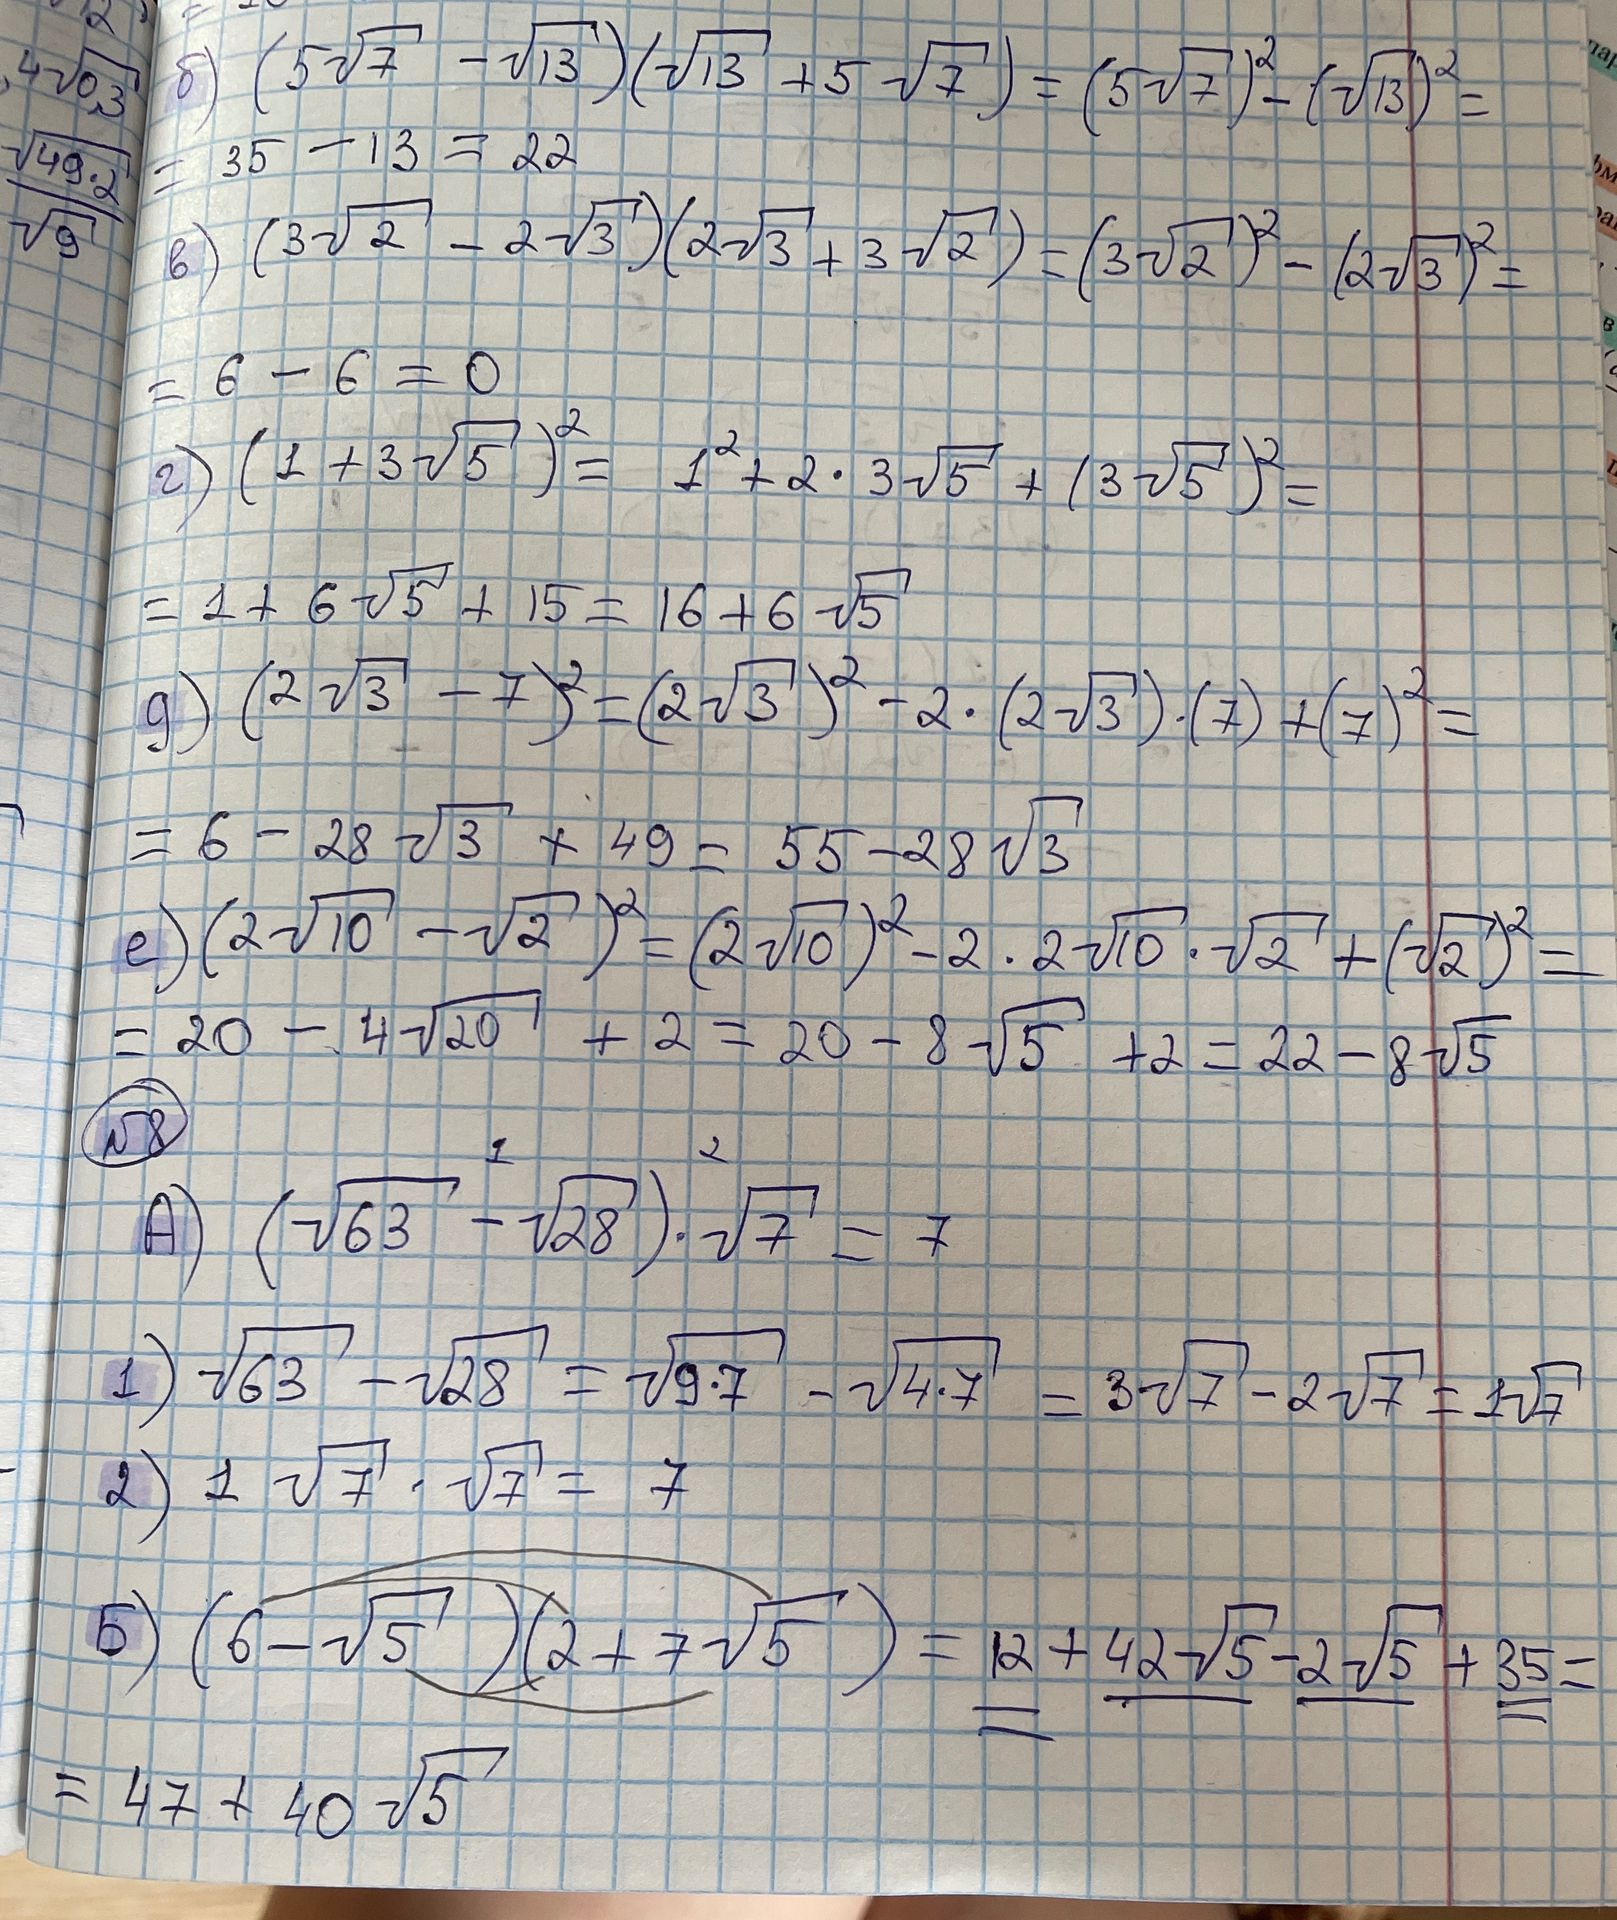 4√0,3
√49·2
√9
б) (5√7 - √13)(√13 + 5√7) = (5√7)² - (√13)² =
= 35 - 13 = 22
в) (3√2 - 2√3)(2√3 + 3√2) = (3√2)² - (2√3)² =
= 6 - 6 = 0
г) (1 + 3√5)² = 1² + 2 · 3√5 + (3√5)² =
= 1 + 6√5 + 15 = 16 + 6√5
д) (2√3 - 7)² = (2√3)² - 2 · (2√3) · (7) + (7)² =
= 6 - 28√3 + 49 = 55 - 28√3
е) (2√10 - √2)² = (2√10)² - 2 · 2√10 · √2 + (√2)² =
= 20 - 4√20 + 2 = 20 - 8√5 + 2 = 22 - 8√5
№8
1 2
А) (√63 - √28) · √7 = 7
1) √63 - √28 = √9·7 - √4·7 = 3√7 - 2√7 = 1√7
2) 1√7 · √7 = 7
Б) (6 - √5)(2 + 7√5) = 12 + 42√5 - 2√5 + 35 =
= 47 + 40√5